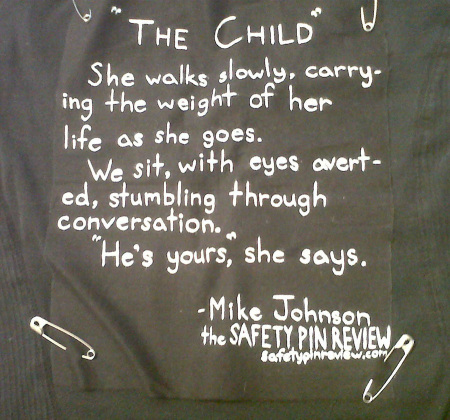 "THE CHILD"
She walks slowly, carry-
ing the weight of her
life as she goes.
We sit, with eyes avert-
ed, stumbling through
conversation.
"He's yours," she says.
-Mike Johnson
the SAFETY PIN REVIEW
safetypinreview.com